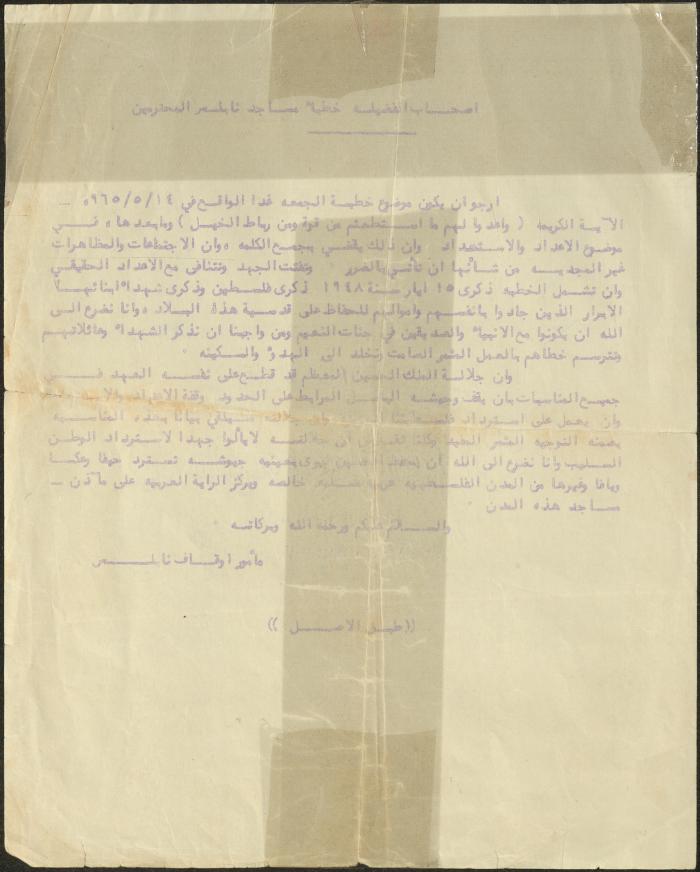 اصحاب الفضيله خطباء مساجد نابلس المحترمين
ارجو ان يكون موضوع خطبة الجمعه غدا الواقع في ١٤/٥/٩٦٥ ـ
الآية الكريمه ( واعدوا لهم ما استطعتم من قوة ومن رباط الخيل ) وما بعدها في
موضوع الاعداد والاستعداد وان ذلك يقضي بجمع الكلمه وان الاجتماعات والمظاهرات
غير المجديه من شأنها ان تأتي بالضرر وتفتت الجهد وتتنافى مع الاعداد الحقيقي
وان تشمل الخطبه ذكرى ١٥ ايار سنة ١٩٤٨ ذكرى فلسطين وذكرى شهداء ابنائها
الابرار الذين جادوا بانفسهم واموالهم للحفاظ على قدسية هذه البلاد وانا نضرع الى
الله ان يكونوا مع الانبياء والصديقين في جنات النعيم ومن واجبنا ان نذكر الشهداء وعائلاتهم
ونترسم خطاهم بالعمل المثمر الصامت ونخلد الى الهدوء والسكينه ٠
وان جلالة الملك الحسين المعظم قد قطع على نفسه العهد في
جميع المناسبات بان يقف وجيشه الباسل المرابط على الحدود وقفة الاعداد
وان يعمل على استرداد جلالته سيلقي بيانا بهذه المناسبه
يضمنه التوجيه المثمر المفيد وكلنا ان جلالته لا يألوا جهدا لاسترداد الوطن
السليب وانا نضرع الى الله ان جيوشه تسترد حيفا وعكا
ويافا وغيرها من المدن الفلسطينيه عربية خالصه ويركز الراية العربيه على مآذن ـ
مساجد هذه المدن ٠
والسلام عليكم ورحمة الله وبركاته ٠
مأمور اوقاف نابلس
((طبق الاصل ))